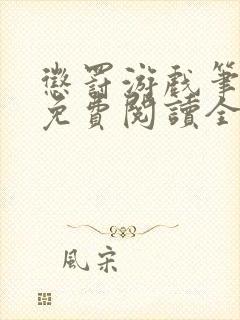 懲罰游戲筆
免費閱讀全
風宋